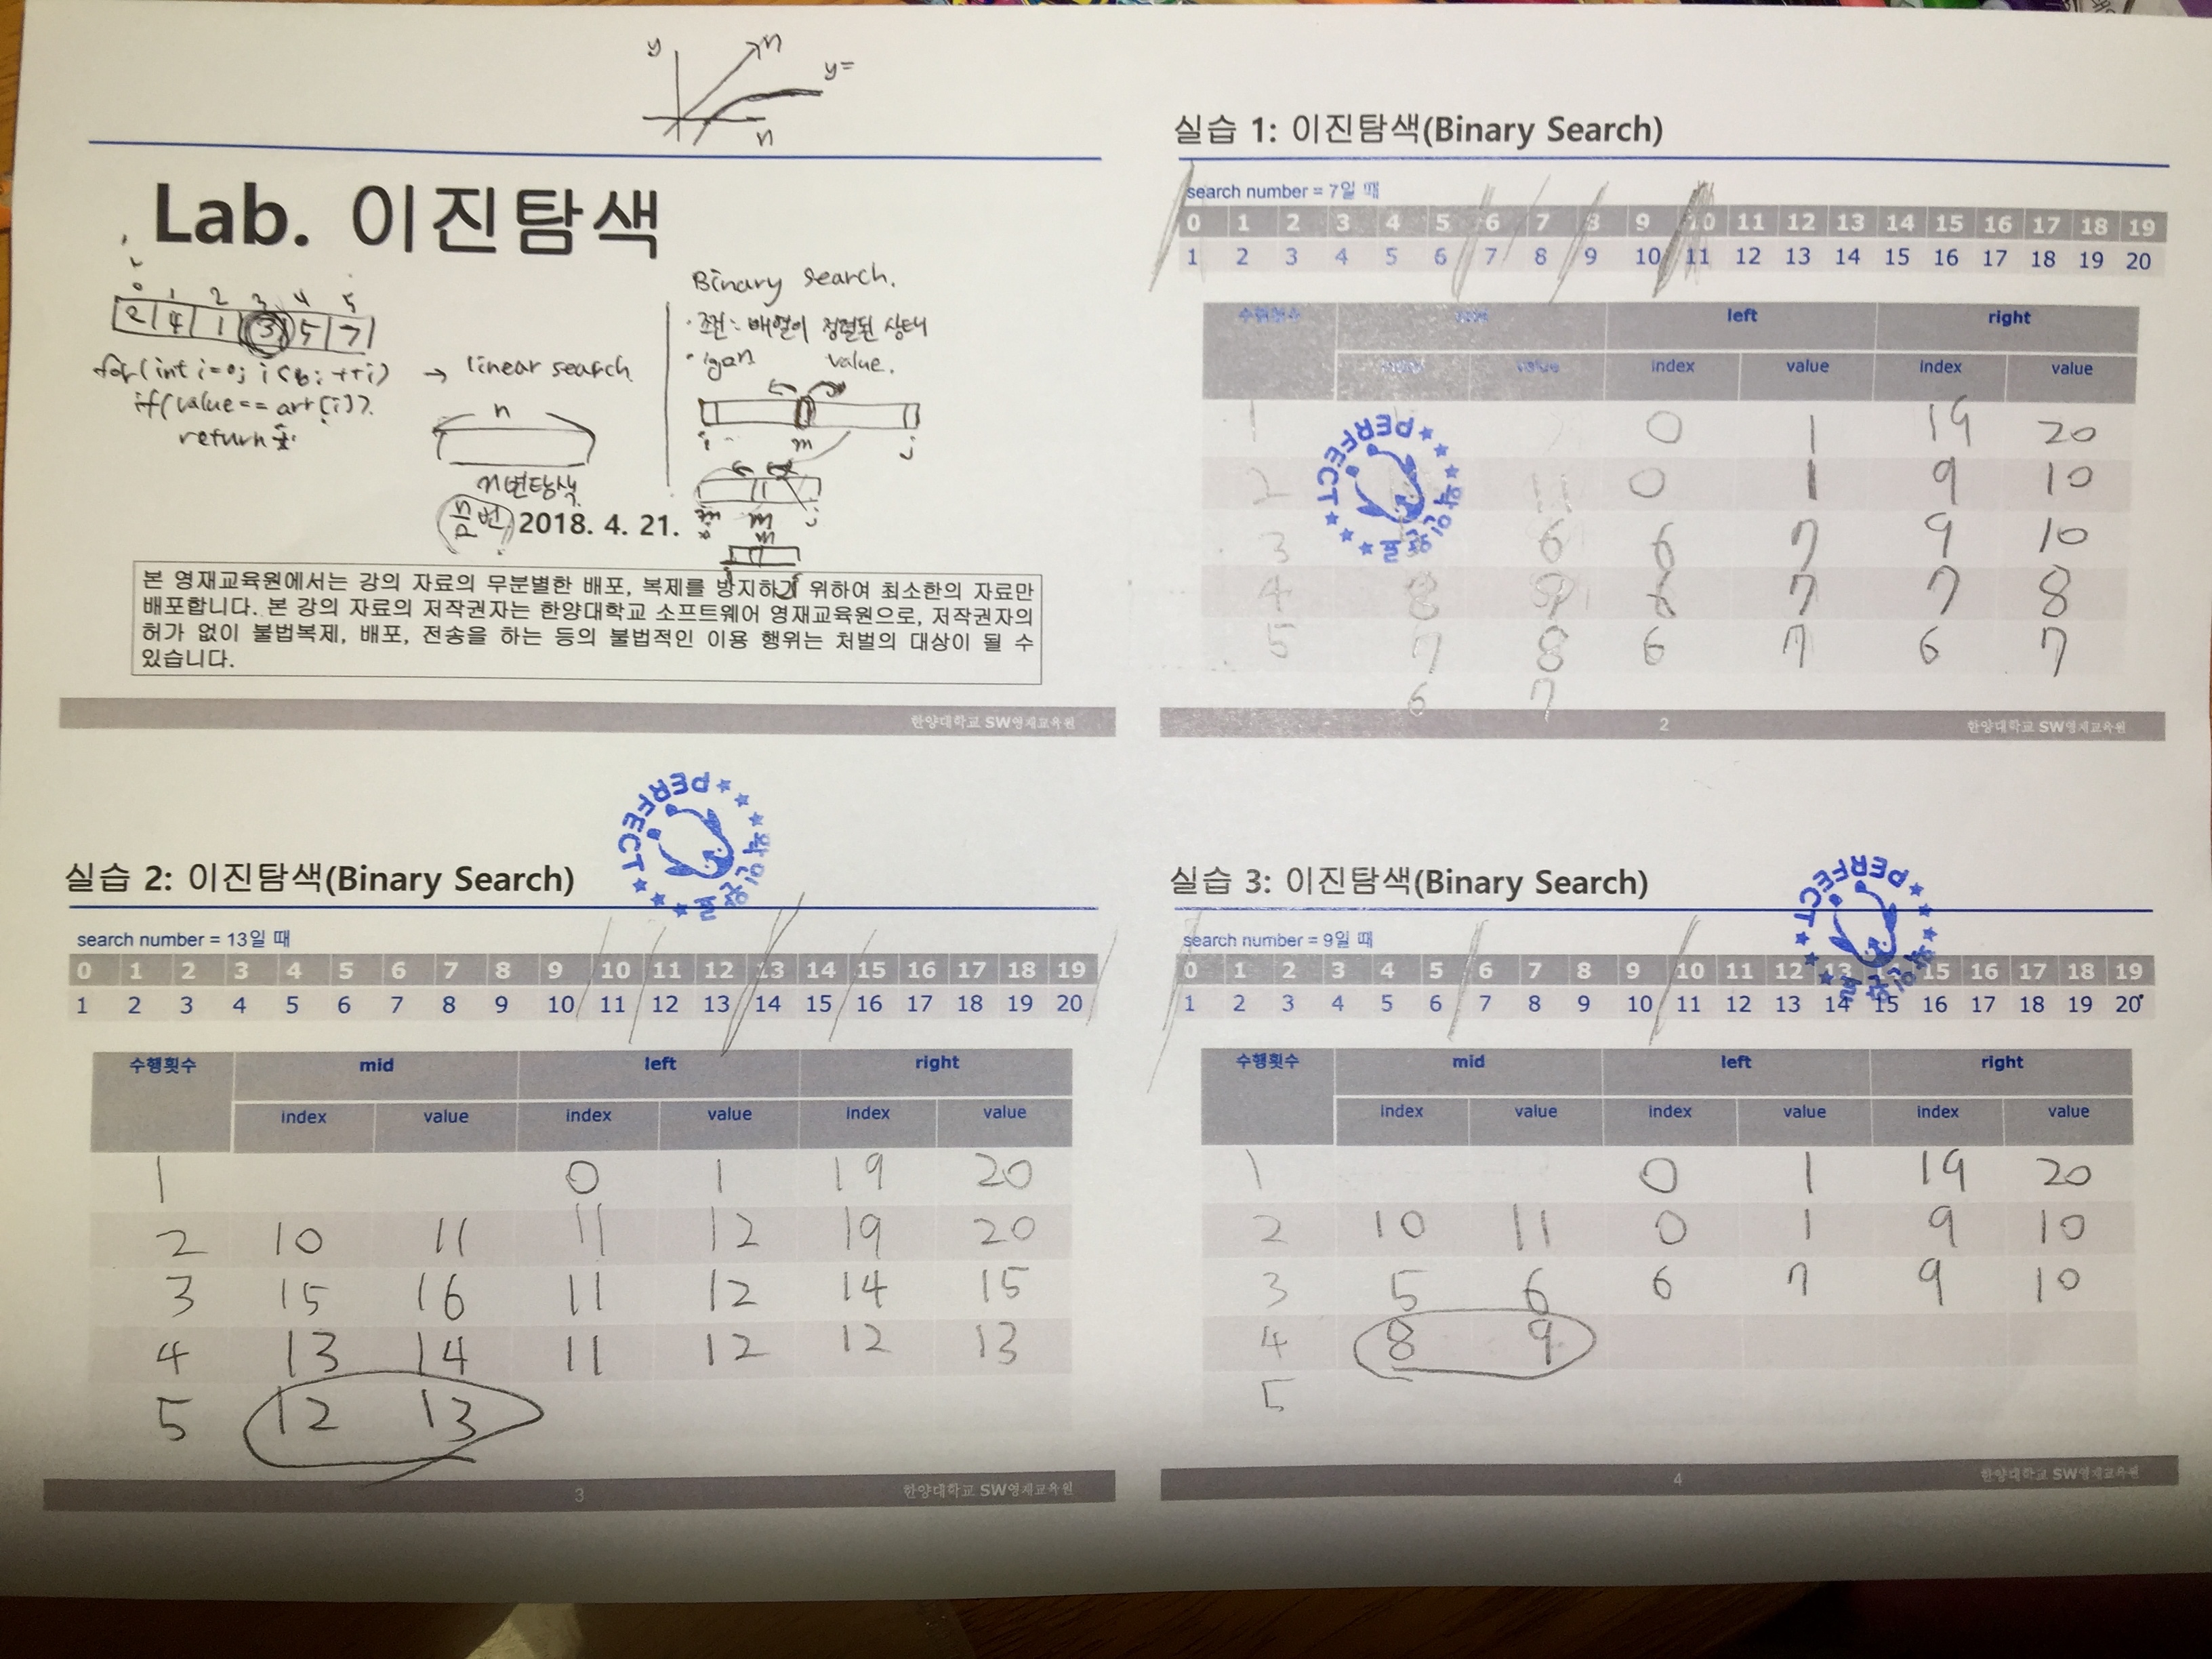 y
n
y=
n
Lab. 이진탐색
0 1 2 3 4 5
2 4 1 3 5 7
for(int i=0; i<6; ++i)
if(value == arr[i])
return i
→ linear search
n
n번탐색
n/2 번
2018. 4. 21.
Binary search.
· 조건: 배열이 정렬된 상태
value.
i m j
m j
m
본 영재교육원에서는 강의 자료의 무분별한 배포, 복제를 방지하기 위하여 최소한의 자료만
배포합니다. 본 강의 자료의 저작권자는 한양대학교 소프트웨어 영재교육원으로, 저작권자의
허가 없이 불법복제, 배포, 전송을 하는 등의 불법적인 이용 행위는 처벌의 대상이 될 수
있습니다.
한양대학교 SW영재교육원
실습 1: 이진탐색(Binary Search)
search number = 7일 때
0 1 2 3 4 5 6 7 8 9 10 11 12 13 14 15 16 17 18 19
1 2 3 4 5 6 7 8 9 10 11 12 13 14 15 16 17 18 19 20
수행횟수 left right
index value index value index value
1 0 1 19 20
2 11 0 1 9 10
3 6 6 7 9 10
4 8 9 6 7 7 8
5 7 8 6 7 6 7
6 7
PERFECT
2
한양대학교 SW영재교육원
PERFECT
실습 2: 이진탐색(Binary Search)
search number = 13일 때
0 1 2 3 4 5 6 7 8 9 10 11 12 13 14 15 16 17 18 19
1 2 3 4 5 6 7 8 9 10 11 12 13 14 15 16 17 18 19 20
수행횟수 mid left right
index value index value index value
1 0 1 19 20
2 10 11 11 12 19 20
3 15 16 11 12 14 15
4 13 14 11 12 12 13
5 12 13
3
한양대학교 SW영재교육원
PERFECT
실습 3: 이진탐색(Binary Search)
search number = 9일 때
0 1 2 3 4 5 6 7 8 9 10 11 12 13 14 15 16 17 18 19
1 2 3 4 5 6 7 8 9 10 11 12 13 14 15 16 17 18 19 20
수행횟수 mid left right
index value index value index value
1 0 1 19 20
2 10 11 0 1 9 10
3 5 6 6 7 9 10
4 8 9
5
4
한양대학교 SW영재교육원